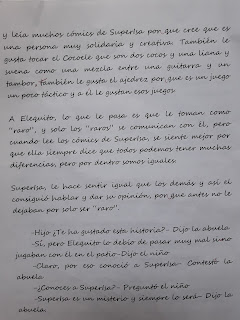 y leía muchos cómics de SuperIsa por que cree que es
una persona muy solidaria y creativa. También le
gusta tocar el Cocoele que son dos cocos y una liana y
suena como una mezcla entre una guitarra y un
tambor, también le gusta el ajedrez por que es un juego
un poco táctico y a él le gustan esos juegos.
A Elequito, lo que le pasa es que le toman como
"raro", y solo los "raros" se comunican con él, pero
cuando lee los cómics de SuperIsa, se siente mejor por
que ella siempre dice que todos podemos tener muchas
diferencias, pero por dentro somos iguales.
SuperIsa, le hace sentir igual que los demás y así el
consiguió hablar y dar su opinión, por que antes no le
dejaban por solo ser "raro".
-Hijo ¿Te ha gustado esta historia?- Dijo la abuela
-Sí, pero Elequito lo debió de pasar muy mal sino
jugaban con él en el patio-Dijo el niño
-Claro, por eso conoció a SuperIsa- Contestó la
abuela
-¿Conoces a SuperIsa?- Preguntó el niño
-SuperIsa es un misterio y siempre lo será- Dijo la
abuela.